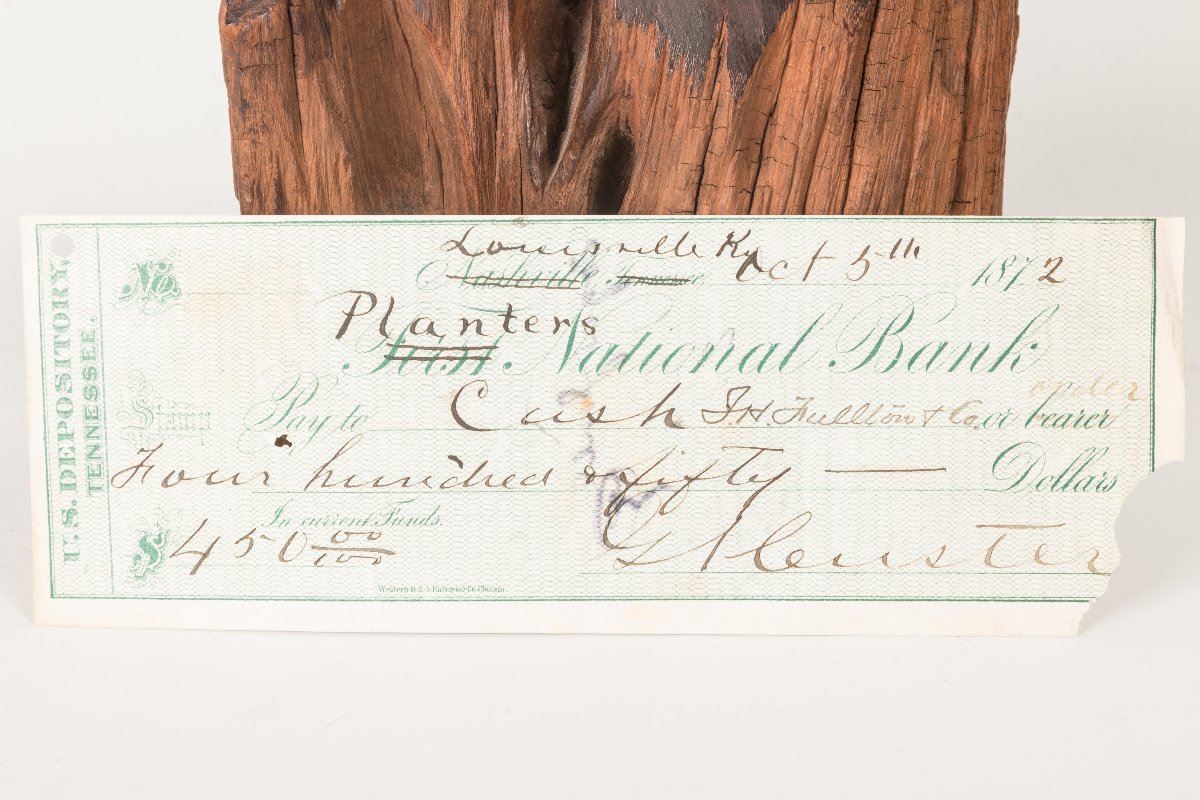 U.S. DEPOSITORY,
TENNESSEE.
Louisville Ky Oct 5th 1872
Nashville
No.
Planters
First National Bank
order
Stamp
Pay to Cash F.H. & Co. or bearer
Four hundred & fifty — Dollars
In current Funds.
$450 00/100
Western B. N. & Engraving Co. Chicago